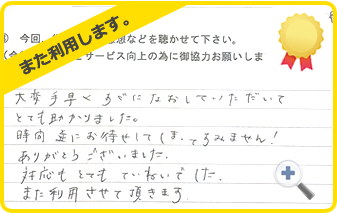 また利用します。
今回、
想などを聴かせて下さい。
サービス向上の為に御協力お願いしま
大変手早くすぐになおしていただいて
とても助かりました。
時間 にお待せしてしまってすみません!
ありがとうございました。
対応もとてもていねいでした。
また利用させて頂きます